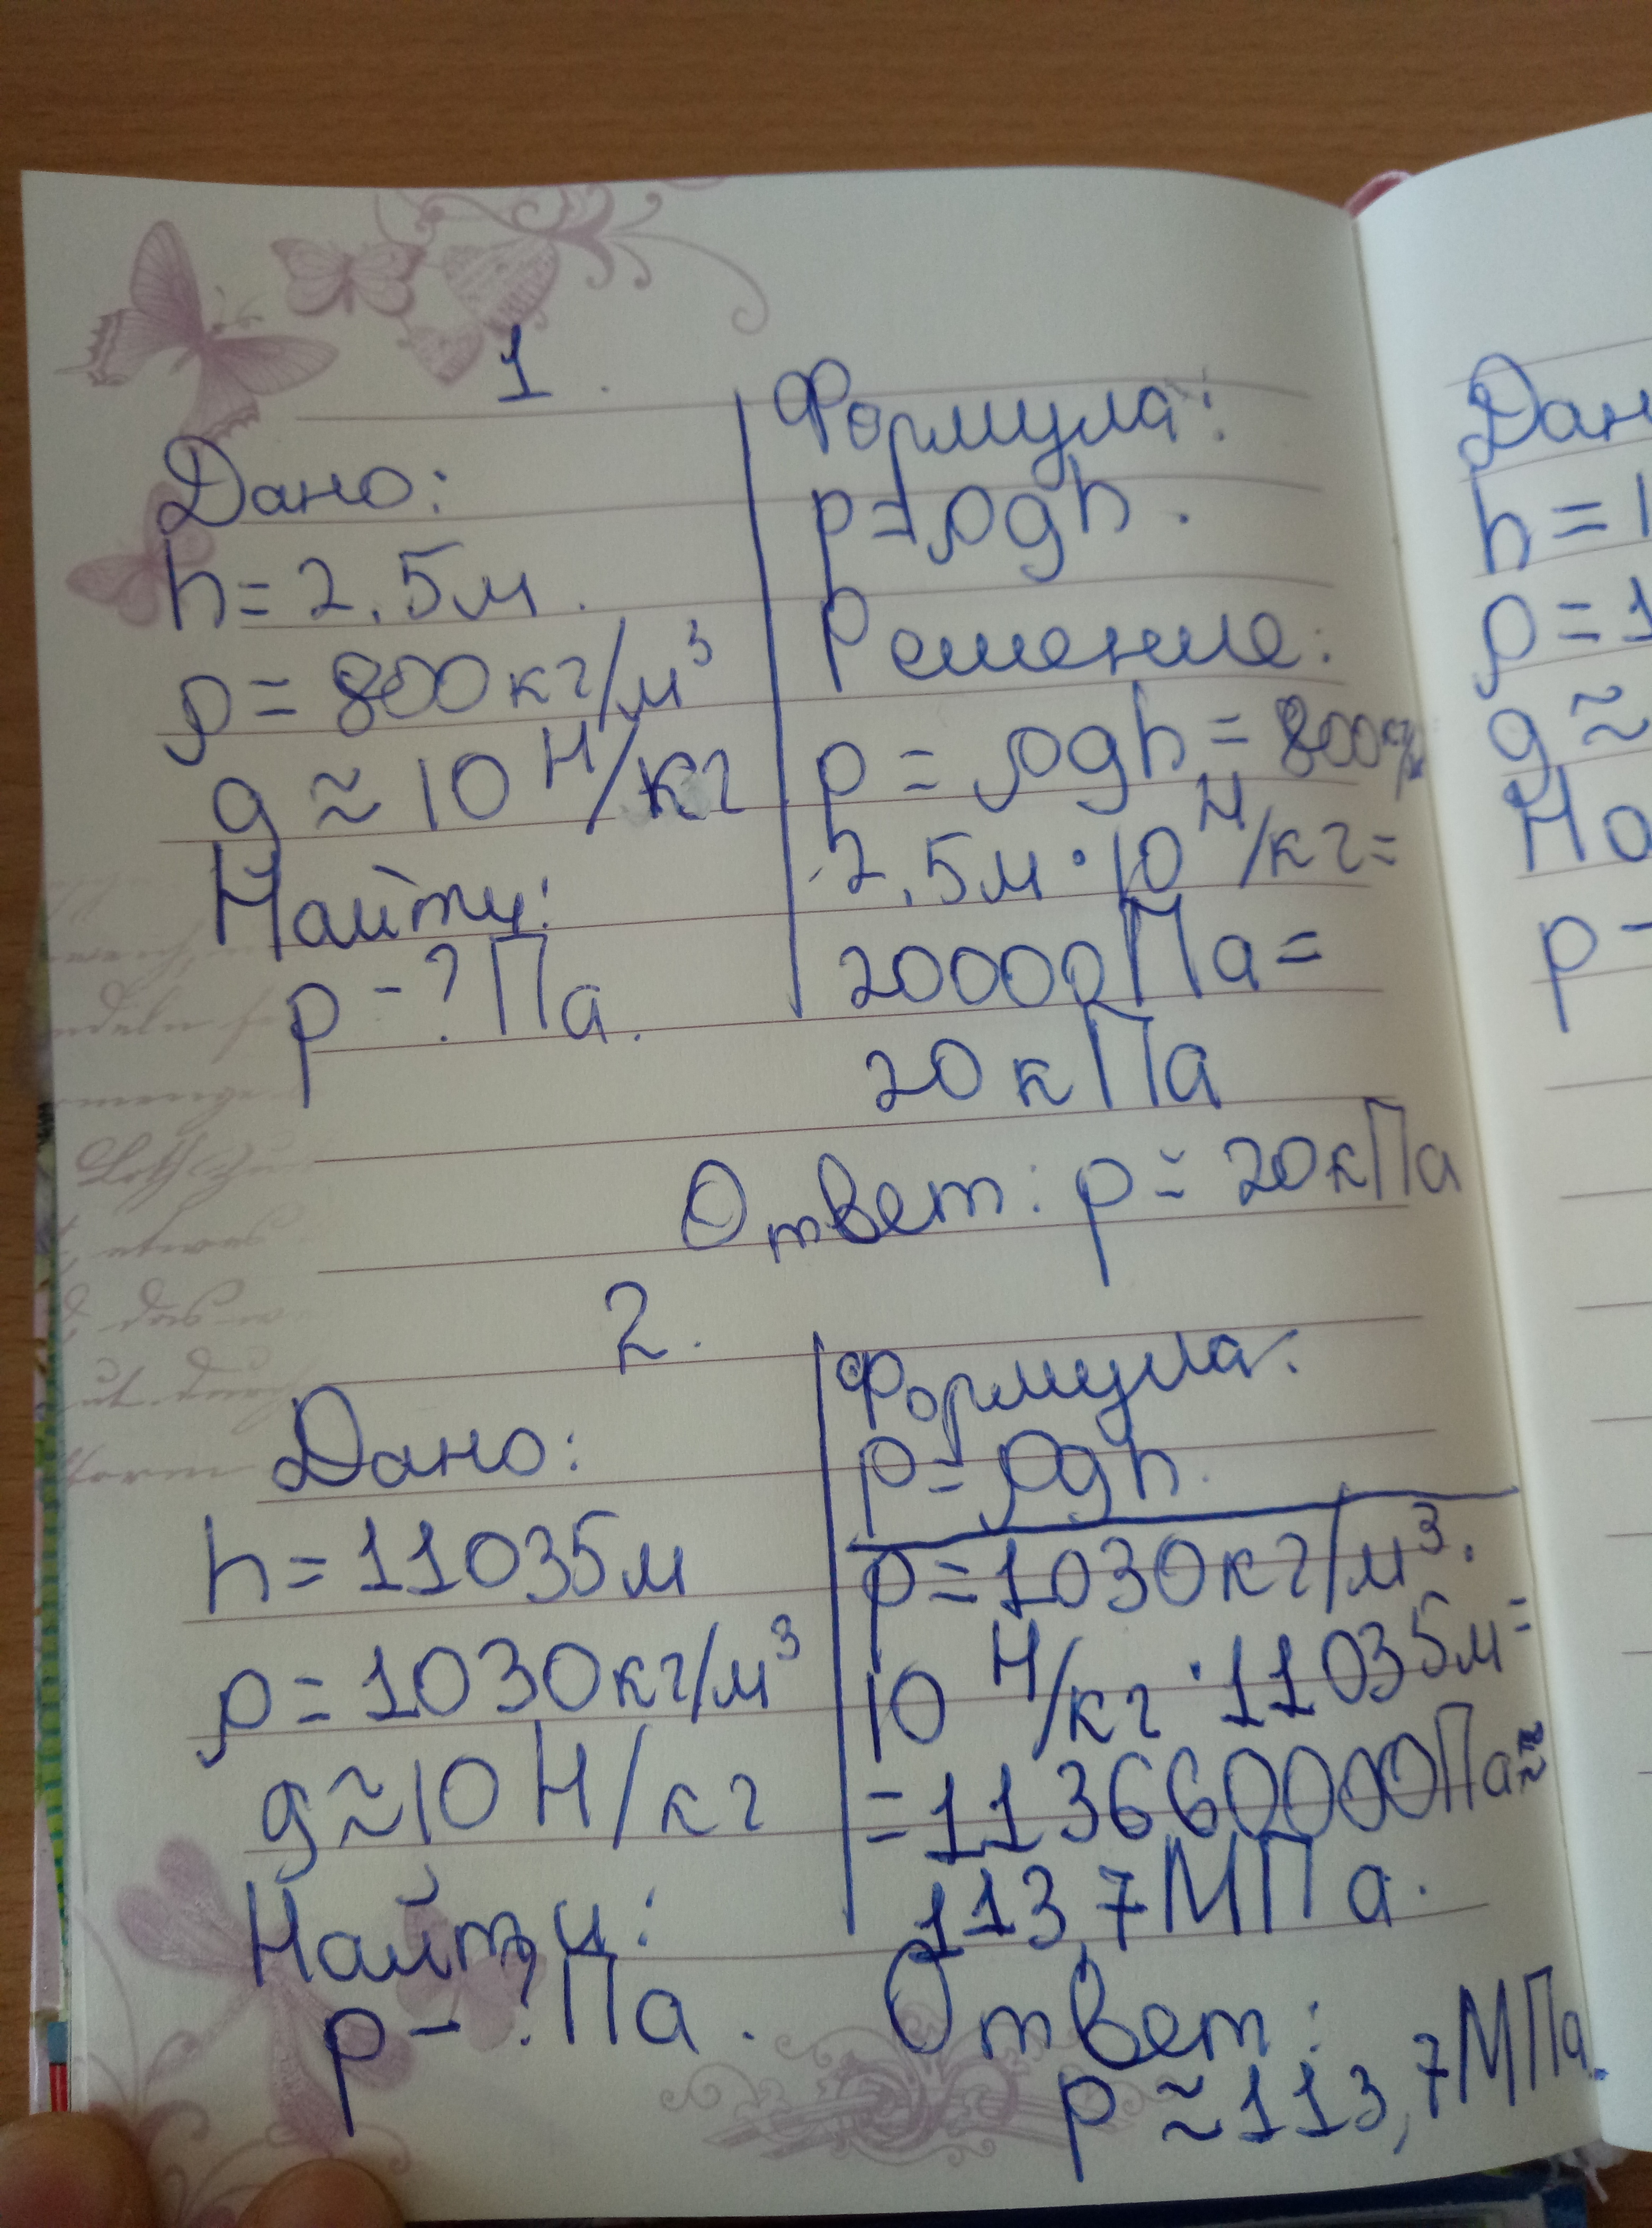 1.
Дано:
h = 2,5м.
ρ = 800кг/м³
g ≈ 10 Н/кг
Найти:
p - ? Па.
Формула:
p = ρgh.
Решение:
p = ρgh = 800кг/м
2,5м · 10 Н/кг =
20000Па =
20 кПа
Ответ: p ≈ 20кПа
2.
Дано:
h = 11035м
ρ = 1030кг/м³
g ≈ 10 Н/кг
Найти:
p - ? Па.
Формула:
p = ρgh.
p = 1030кг/м³ ·
10 Н/кг · 11035м =
= 113660000Па ≈
113,7МПа.
Ответ:
p ≈ 113,7МПа.
Дан
h = 1
ρ = 1
g ≈
На
p -